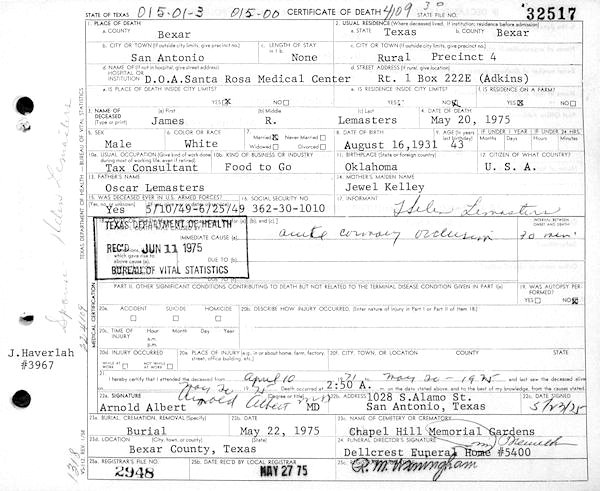 STATE OF TEXAS 015-01-3 015-00 CERTIFICATE OF DEATH 4109 30 STATE FILE NO. 32517
1. PLACE OF DEATH 2. USUAL RESIDENCE (Where deceased lived. If institution: residence before admission)
a. COUNTY Bexar a. STATE Texas b. COUNTY Bexar
b. CITY OR TOWN (If outside city limits, give precinct no.) c. LENGTH OF STAY c. CITY OR TOWN (If outside city limits, give precinct no.)
San Antonio None Rural Precinct 4
d. NAME OF (If not in hospital, give street address) HOSPITAL OR INSTITUTION D.O.A. Santa Rosa Medical Center d. STREET ADDRESS (If rural, give location) Rt. 1 Box 222E (Adkins)
e. IS PLACE OF DEATH INSIDE CITY LIMITS? e. IS RESIDENCE INSIDE CITY LIMITS? f. IS RESIDENCE ON A FARM?
YES X NO YES NO X YES NO X
3. NAME OF DECEASED (Type or print) (a) First (b) Middle (c) Last 4. DATE OF DEATH
James R. Lemasters May 20, 1975
5. SEX 6. COLOR OR RACE 7. Married X Never Married Widowed Divorced 8. DATE OF BIRTH 9. AGE (In years last birthday) IF UNDER 1 YEAR IF UNDER 24 HRS.
Male White August 16,1931 43
10a. USUAL OCCUPATION (Give kind of work done during most of working life, even if retired) 10b. KIND OF BUSINESS OR INDUSTRY 11. BIRTHPLACE (State or foreign country) 12. CITIZEN OF WHAT COUNTRY?
Tax Consultant Food to Go Oklahoma U. S. A.
13. FATHER'S NAME 14. MOTHER'S MAIDEN NAME
Oscar Lemasters Jewel Kelley
15. WAS DECEASED EVER IN U.S. ARMED FORCES? 16. SOCIAL SECURITY NO. 17. INFORMANT
Yes 5/10/49-6/25/49 362-30-1010 Helen Lemasters
TEXAS DEPARTMENT OF HEALTH
REC'D JUN 11 1975
BUREAU OF VITAL STATISTICS
IMMEDIATE CAUSE (a) acute coronary occlusion INTERVAL BETWEEN ONSET AND DEATH 30 min
PART II. OTHER SIGNIFICANT CONDITIONS CONTRIBUTING TO DEATH BUT NOT RELATED TO THE TERMINAL DISEASE CONDITION GIVEN IN PART I(a) 19. WAS AUTOPSY PERFORMED? YES NO X
20a. ACCIDENT SUICIDE HOMICIDE 20b. DESCRIBE HOW INJURY OCCURRED. (Enter nature of injury in Part I or Part II of Item 18.)
20c. TIME OF INJURY Hour Month Day Year a.m. p.m.
20d. INJURY OCCURRED WHILE AT WORK NOT WHILE AT WORK 20e. PLACE OF INJURY (e.g., in or about home, farm, factory, street, office building, etc.) 20f. CITY, TOWN, OR LOCATION COUNTY STATE
21. I hereby certify that I attended the deceased from April 10 '71 - May 20 - 1975 and last saw the deceased alive
on May 20 '75 Death occurred at 2:50 A. m. on the date stated above, and to the best of my knowledge, from the causes stated.
22a. SIGNATURE Arnold Albert MD 22b. ADDRESS 1028 S.Alamo St. 22c. DATE SIGNED
Arnold Albert MD San Antonio, Texas 5/22/75
23a. BURIAL, CREMATION, REMOVAL (Specify) 23b. DATE 23c. NAME OF CEMETERY OR CREMATORY
Burial May 22, 1975 Chapel Hill Memorial Gardens
23d. LOCATION 24. FUNERAL DIRECTOR'S SIGNATURE
Bexar County, Texas Dellcrest Funeral Home #5400
25a. REGISTRAR'S FILE NO. 25b. DATE REC'D BY LOCAL REGISTRAR 25c.
2948 MAY 27 75
TEXAS DEPARTMENT OF HEALTH — BUREAU OF VITAL STATISTICS
MEDICAL CERTIFICATION
Spouse Helen Lemasters
J.Haverlah
#3967